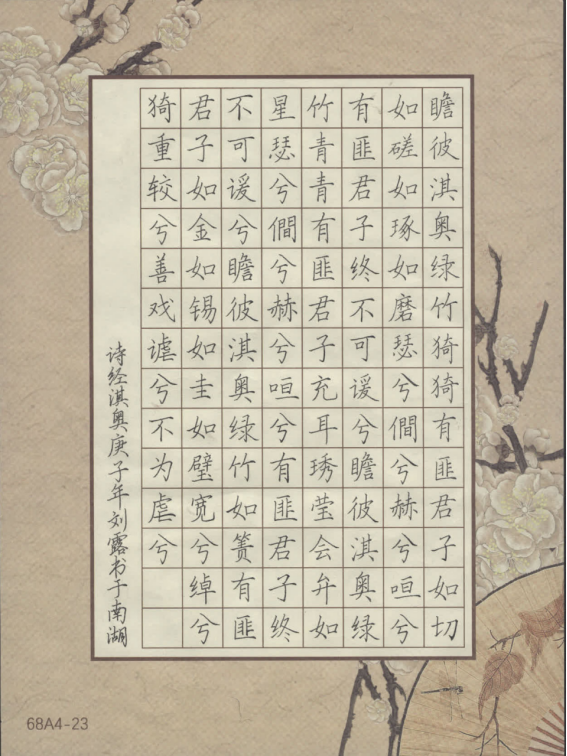 瞻彼淇奥绿竹猗猗有匪君子如切
如磋如琢如磨瑟兮僴兮赫兮咺兮
有匪君子终不可谖兮瞻彼淇奥绿
竹青青有匪君子充耳琇莹会弁如
星瑟兮僴兮赫兮咺兮有匪君子终
不可谖兮瞻彼淇奥绿竹如箦有匪
君子如金如锡如圭如璧宽兮绰兮
猗重较兮善戏谑兮不为虐兮
诗经淇奥庚子年刘露书于南湖
68A4-23